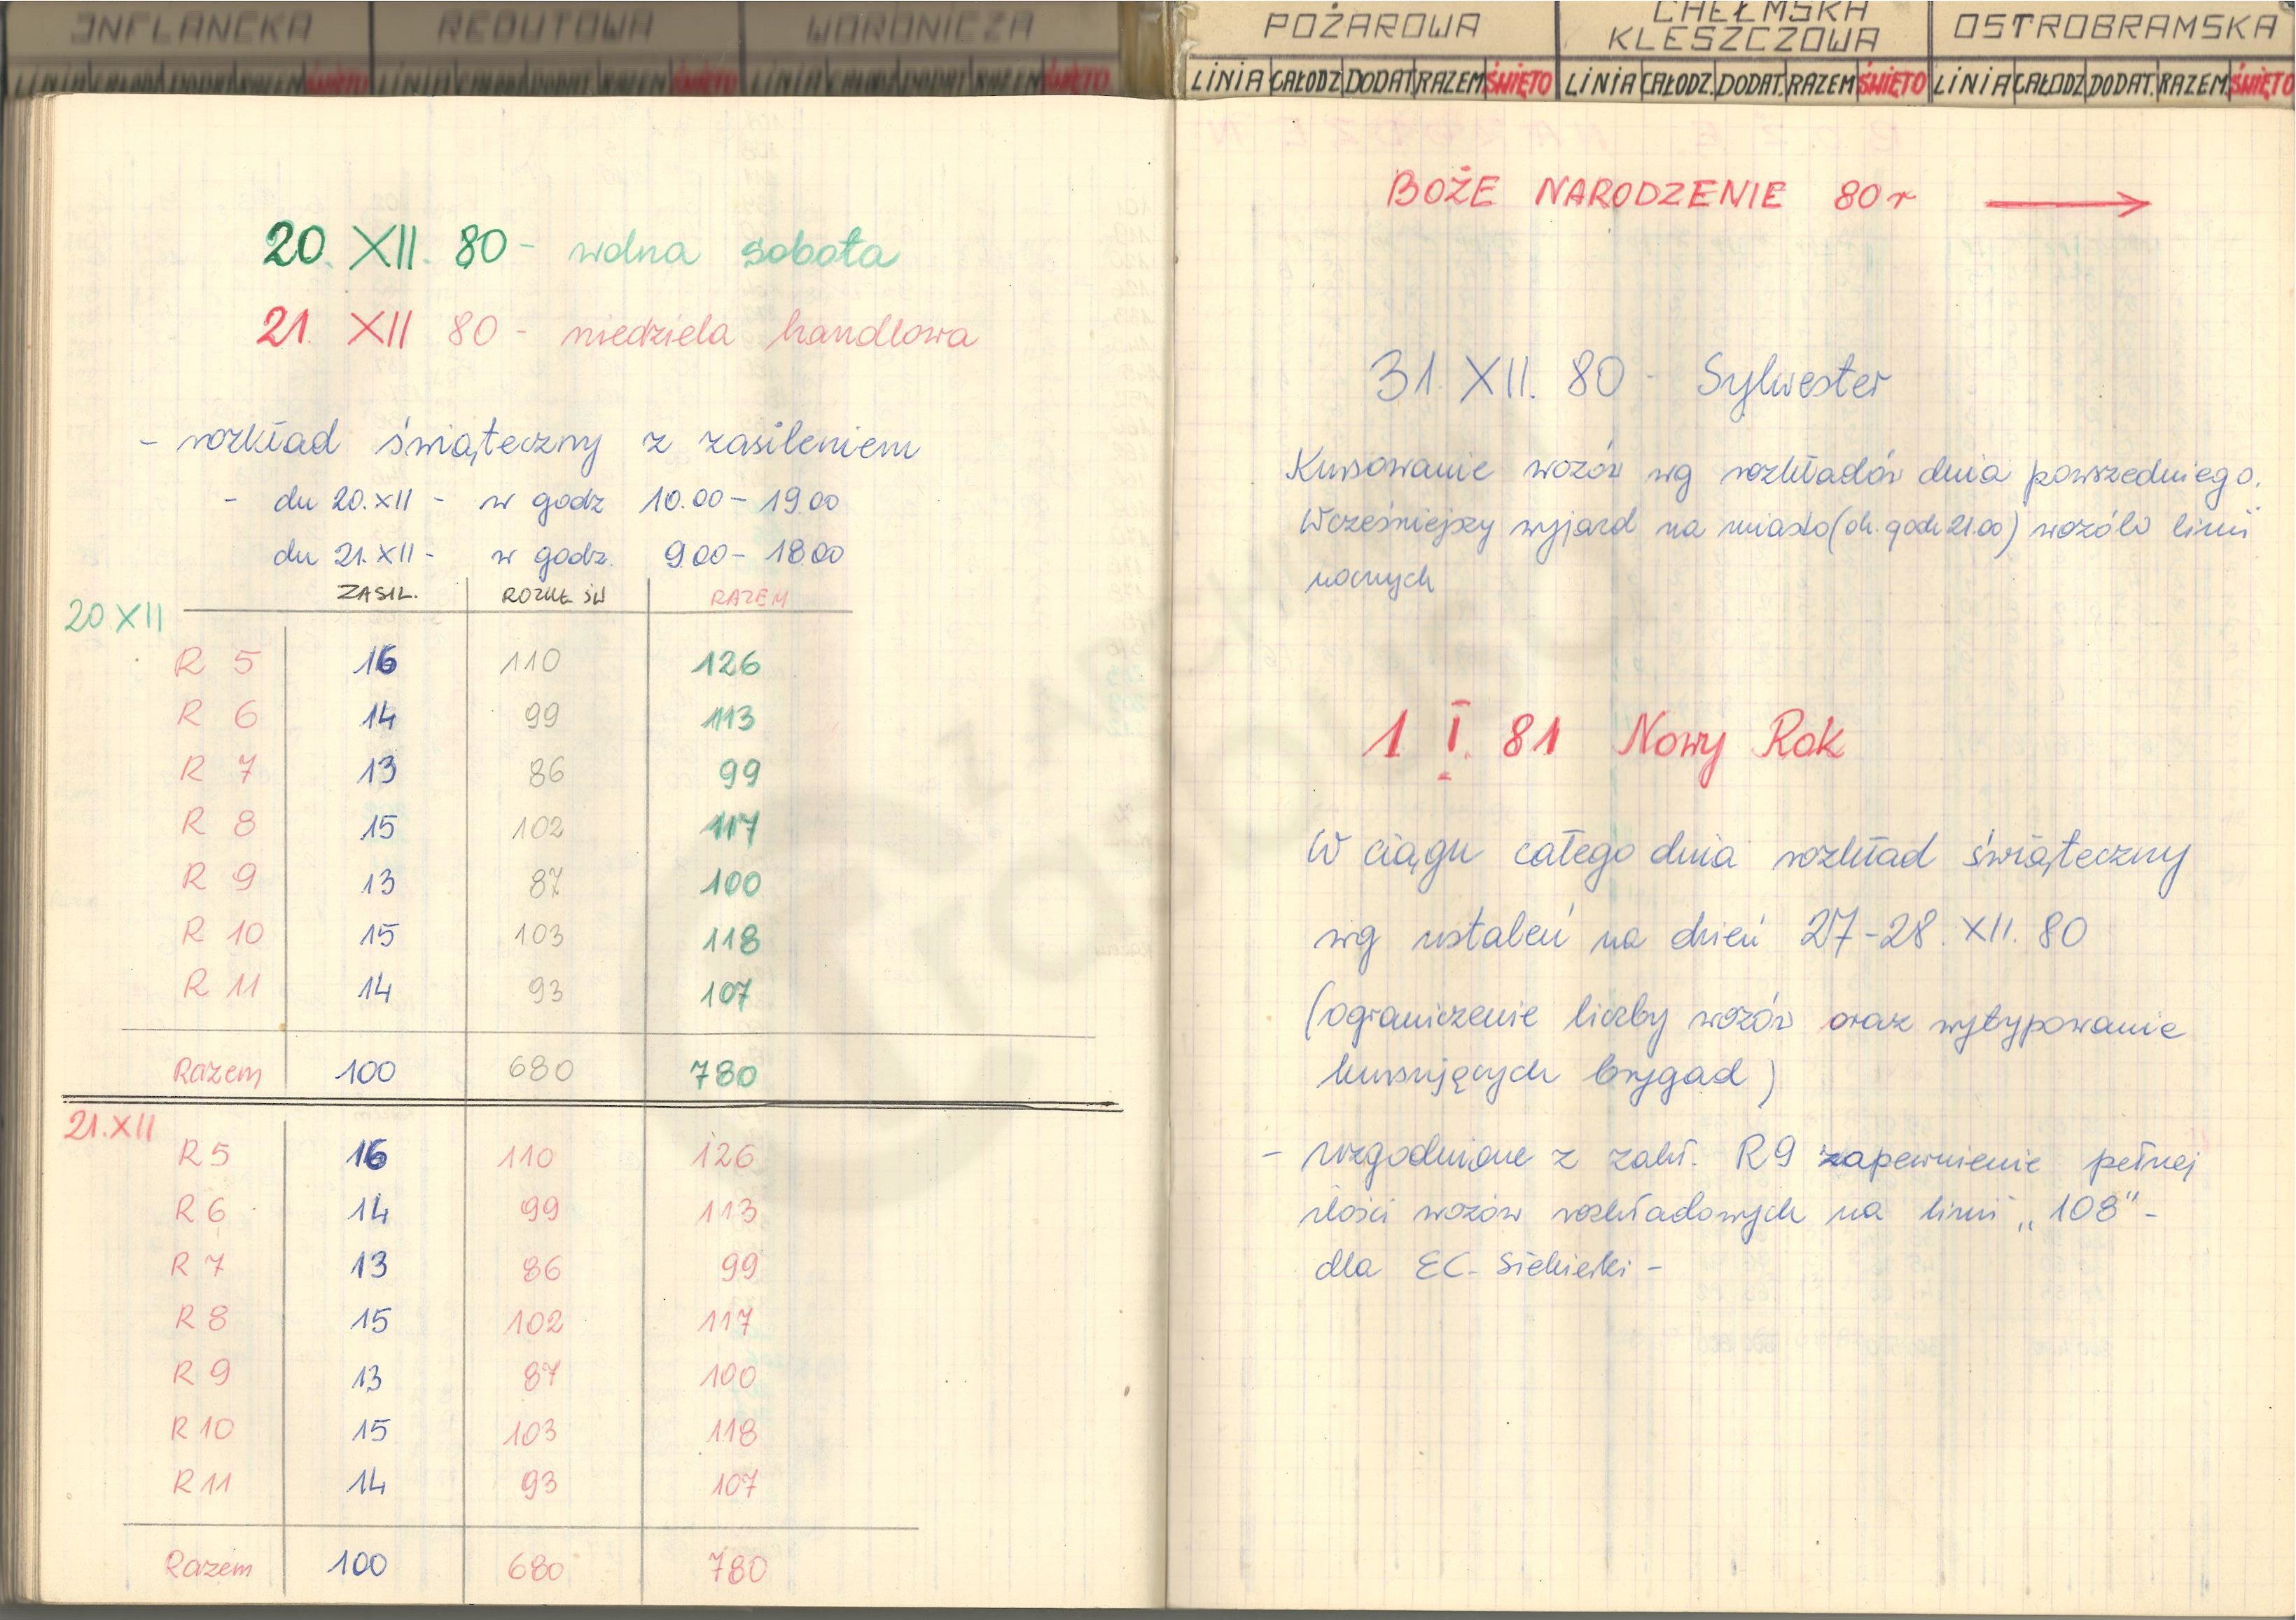 INFLANCKA REDUTOWA WORONICZA
LINIA CAŁODZ DODAT RAZEM ŚWIĘTO LINIA CAŁODZ DODAT RAZEM ŚWIĘTO LINIA CAŁODZ DODAT RAZEM ŚWIĘTO
20. XII. 80 - wolna sobota
21. XII 80 - niedziela handlowa
- rozkład świąteczny z zasileniem
- dn 20.XII - w godz 10.00 - 19.00
dn 21.XII - w godz. 9.00 - 18.00
ZASIL. ROZKŁ ŚW RAZEM
20 XII
R 5 16 110 126
R 6 14 99 113
R 7 13 86 99
R 8 15 102 117
R 9 13 87 100
R 10 15 103 118
R 11 14 93 107
Razem 100 680 780
21.XII
R 5 16 110 126
R 6 14 99 113
R 7 13 86 99
R 8 15 102 117
R 9 13 87 100
R 10 15 103 118
R 11 14 93 107
Razem 100 680 780
POŻAROWA CHEŁMSKA KLESZCZOWA OSTROBRAMSKA
LINIA CAŁODZ DODAT RAZEM ŚWIĘTO LINIA CAŁODZ. DODAT. RAZEM ŚWIĘTO LINIA CAŁODZ DODAT. RAZEM. ŚWIĘTO
BOŻE NARODZENIE 80 r →
31. XII. 80 - Sylwester
Kursowanie wozów wg rozkładów dnia powszedniego.
Wcześniejszy wyjazd na miasto (ok. godz 21.00) wozów linii
nocnych
1 I. 81 Nowy Rok
W ciągu całego dnia rozkład świąteczny
wg ustaleń na dzień 27-28. XII. 80
(ograniczenie liczby wozów oraz wytypowanie
kursujących brygad)
- uzgodnione z zakł. R9 zapewnienie pełnej
ilości wozów rozkładowych na linii „108" -
dla EC - Siekierki -